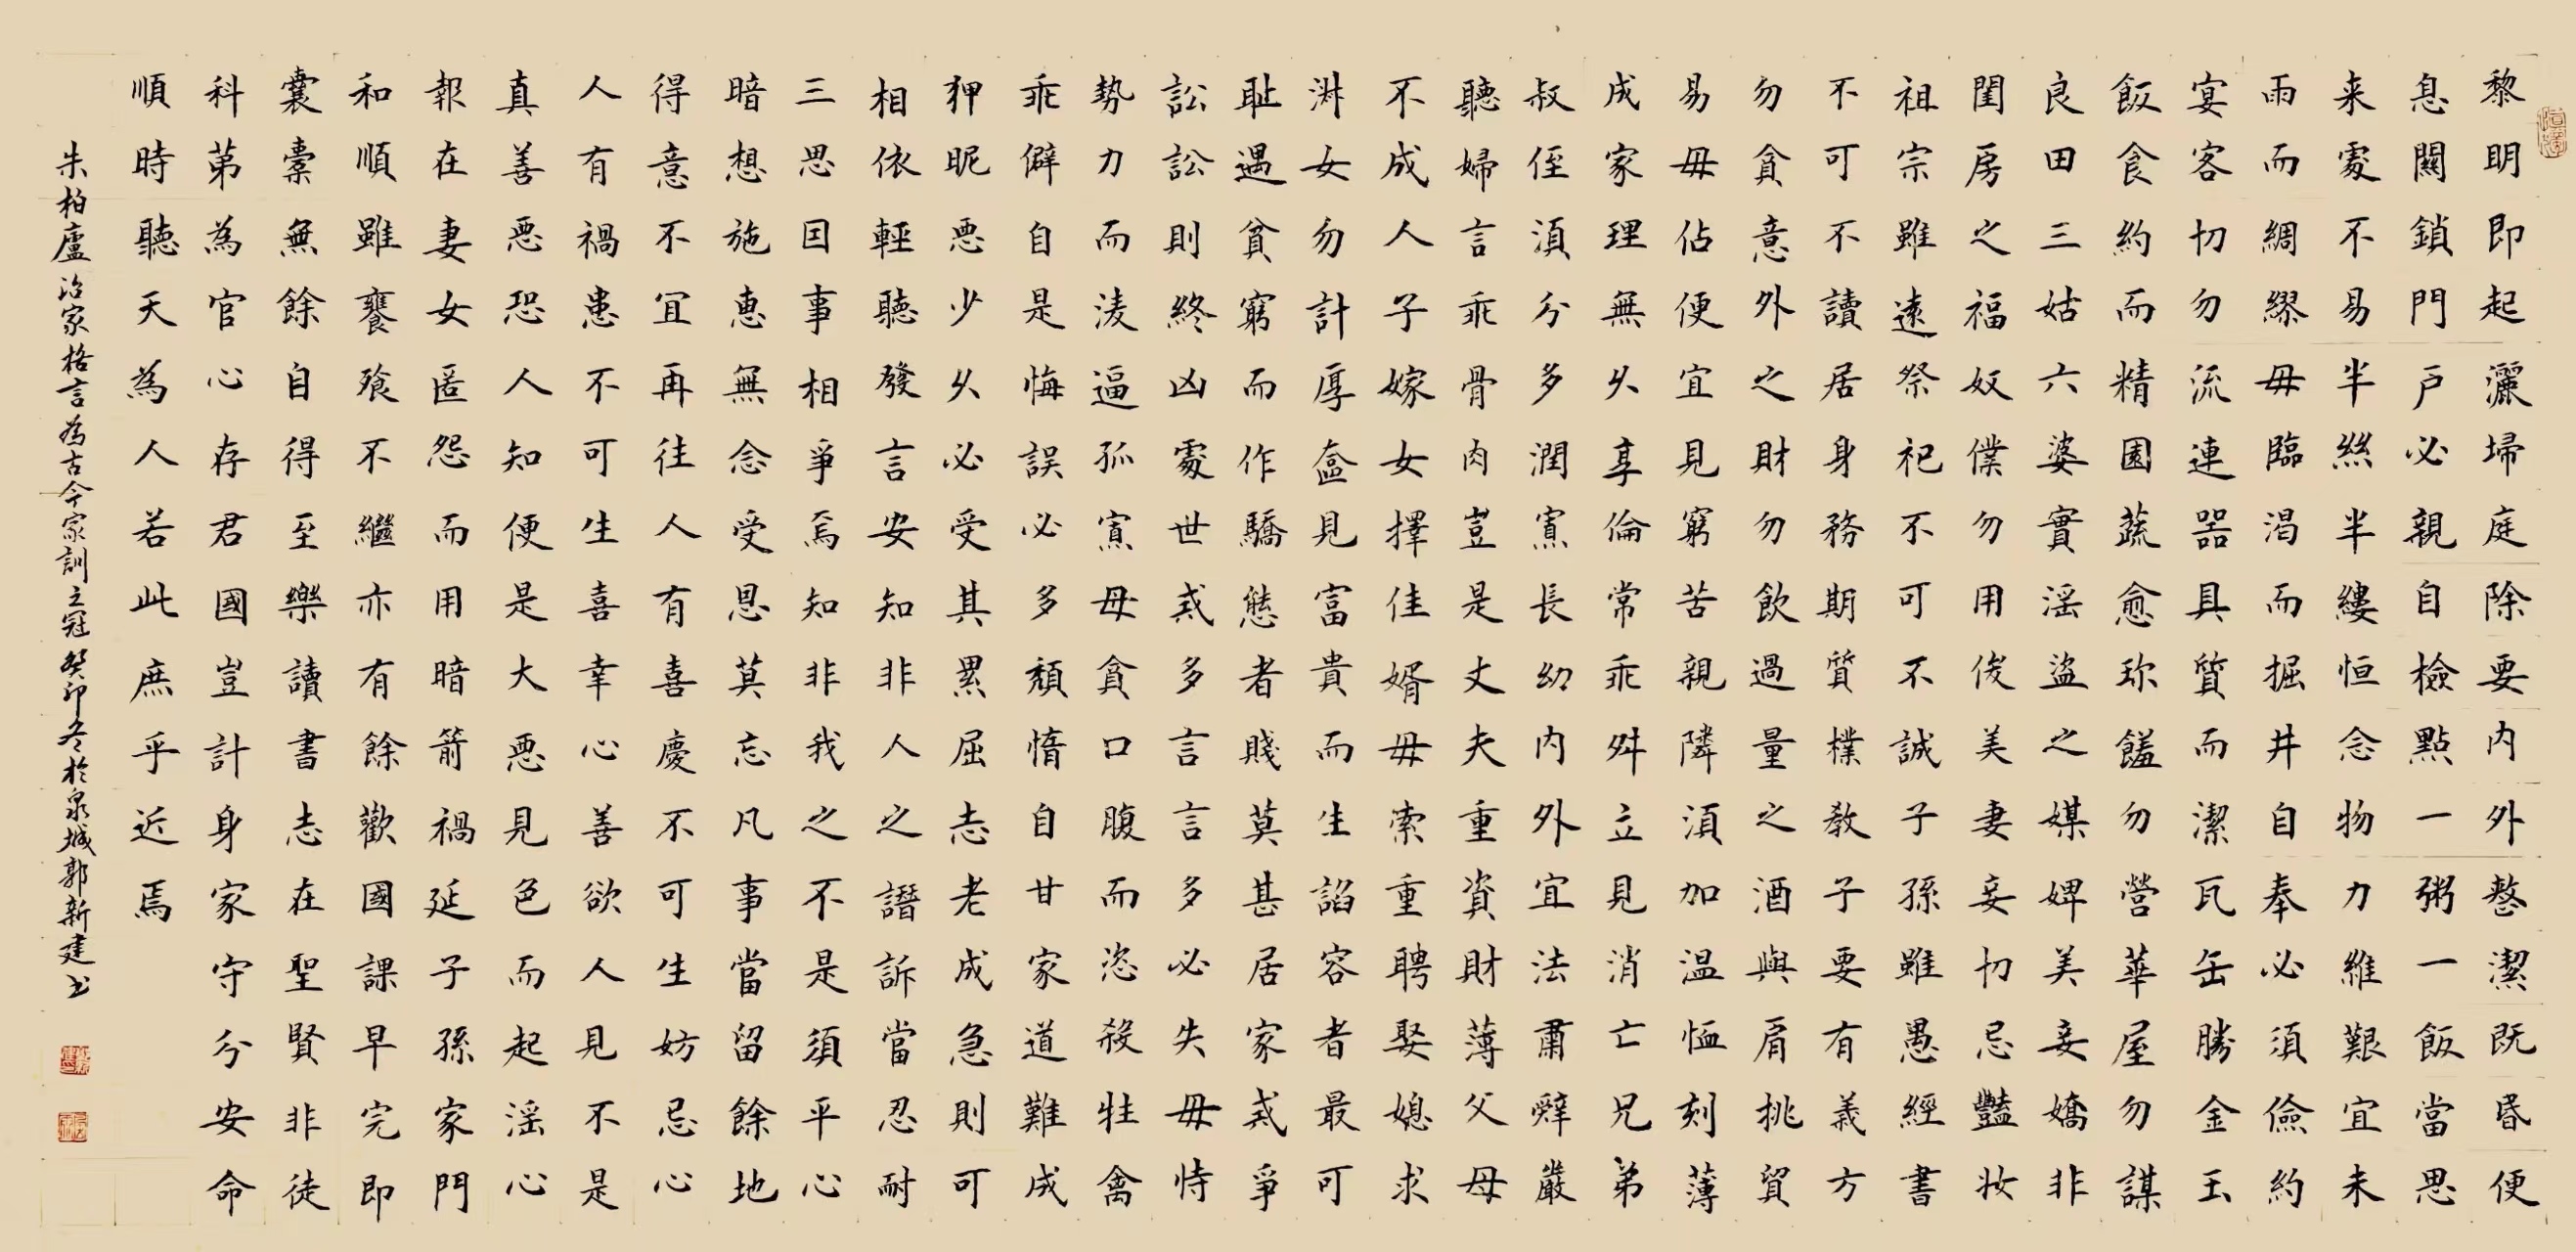 黎明即起灑埽庭除要内外整潔既昏便
息關鎖門户必親自檢點一粥一飯當思
来處不易半絲半縷恒念物力維艱宜未
雨而綢繆毋臨渇而掘井自奉必須儉約
宴客切勿流連器具質而潔瓦缶勝金玉
飯食約而精園蔬愈珎饈勿營華屋勿謀
良田三姑六婆實淫盗之媒婢美妾嬌非
閨房之福奴僕勿用俊美妻妾切忌豔妝
祖宗雖遠祭祀不可不誠子孫雖愚經書
不可不讀居身務期質樸教子要有義方
勿貪意外之財勿飲過量之酒與肩挑貿
易毋佔便宜見窮苦親隣須加温恤刻薄
成家理無久享倫常乖舛立見消亡兄弟
叔侄須分多潤寡長幼内外宜法肅辭嚴
聽婦言乖骨肉豈是丈夫重資財薄父母
不成人子嫁女擇佳婿毋索重聘娶媳求
淑女勿計厚奩見富貴而生諂容者最可
耻遇貧窮而作驕態者賤莫甚居家戒爭
訟訟則終凶處世戒多言言多必失毋恃
勢力而淩逼孤寡毋貪口腹而恣殺牲禽
乖僻自是悔誤必多頽惰自甘家道難成
狎昵恶少久必受其累屈志老成急則可
相依輕聽發言安知非人之譖訴當忍耐
三思因事相爭焉知非我之不是須平心
暗想施惠無念受恩莫忘凡事當留餘地
得意不宜再往人有喜慶不可生妨忌心
人有禍患不可生喜幸心善欲人見不是
真善恶恐人知便是大恶見色而起淫心
報在妻女匿怨而用暗箭禍延子孫家門
和順雖饔飧不繼亦有餘歡國課早完即
囊橐無餘自得至樂讀書志在聖賢非徒
科第為官心存君國豈計身家守分安命
順時聽天為人若此庶乎近焉
朱柏廬治家格言為古今家訓之冠癸卯冬於泉城郭新建书